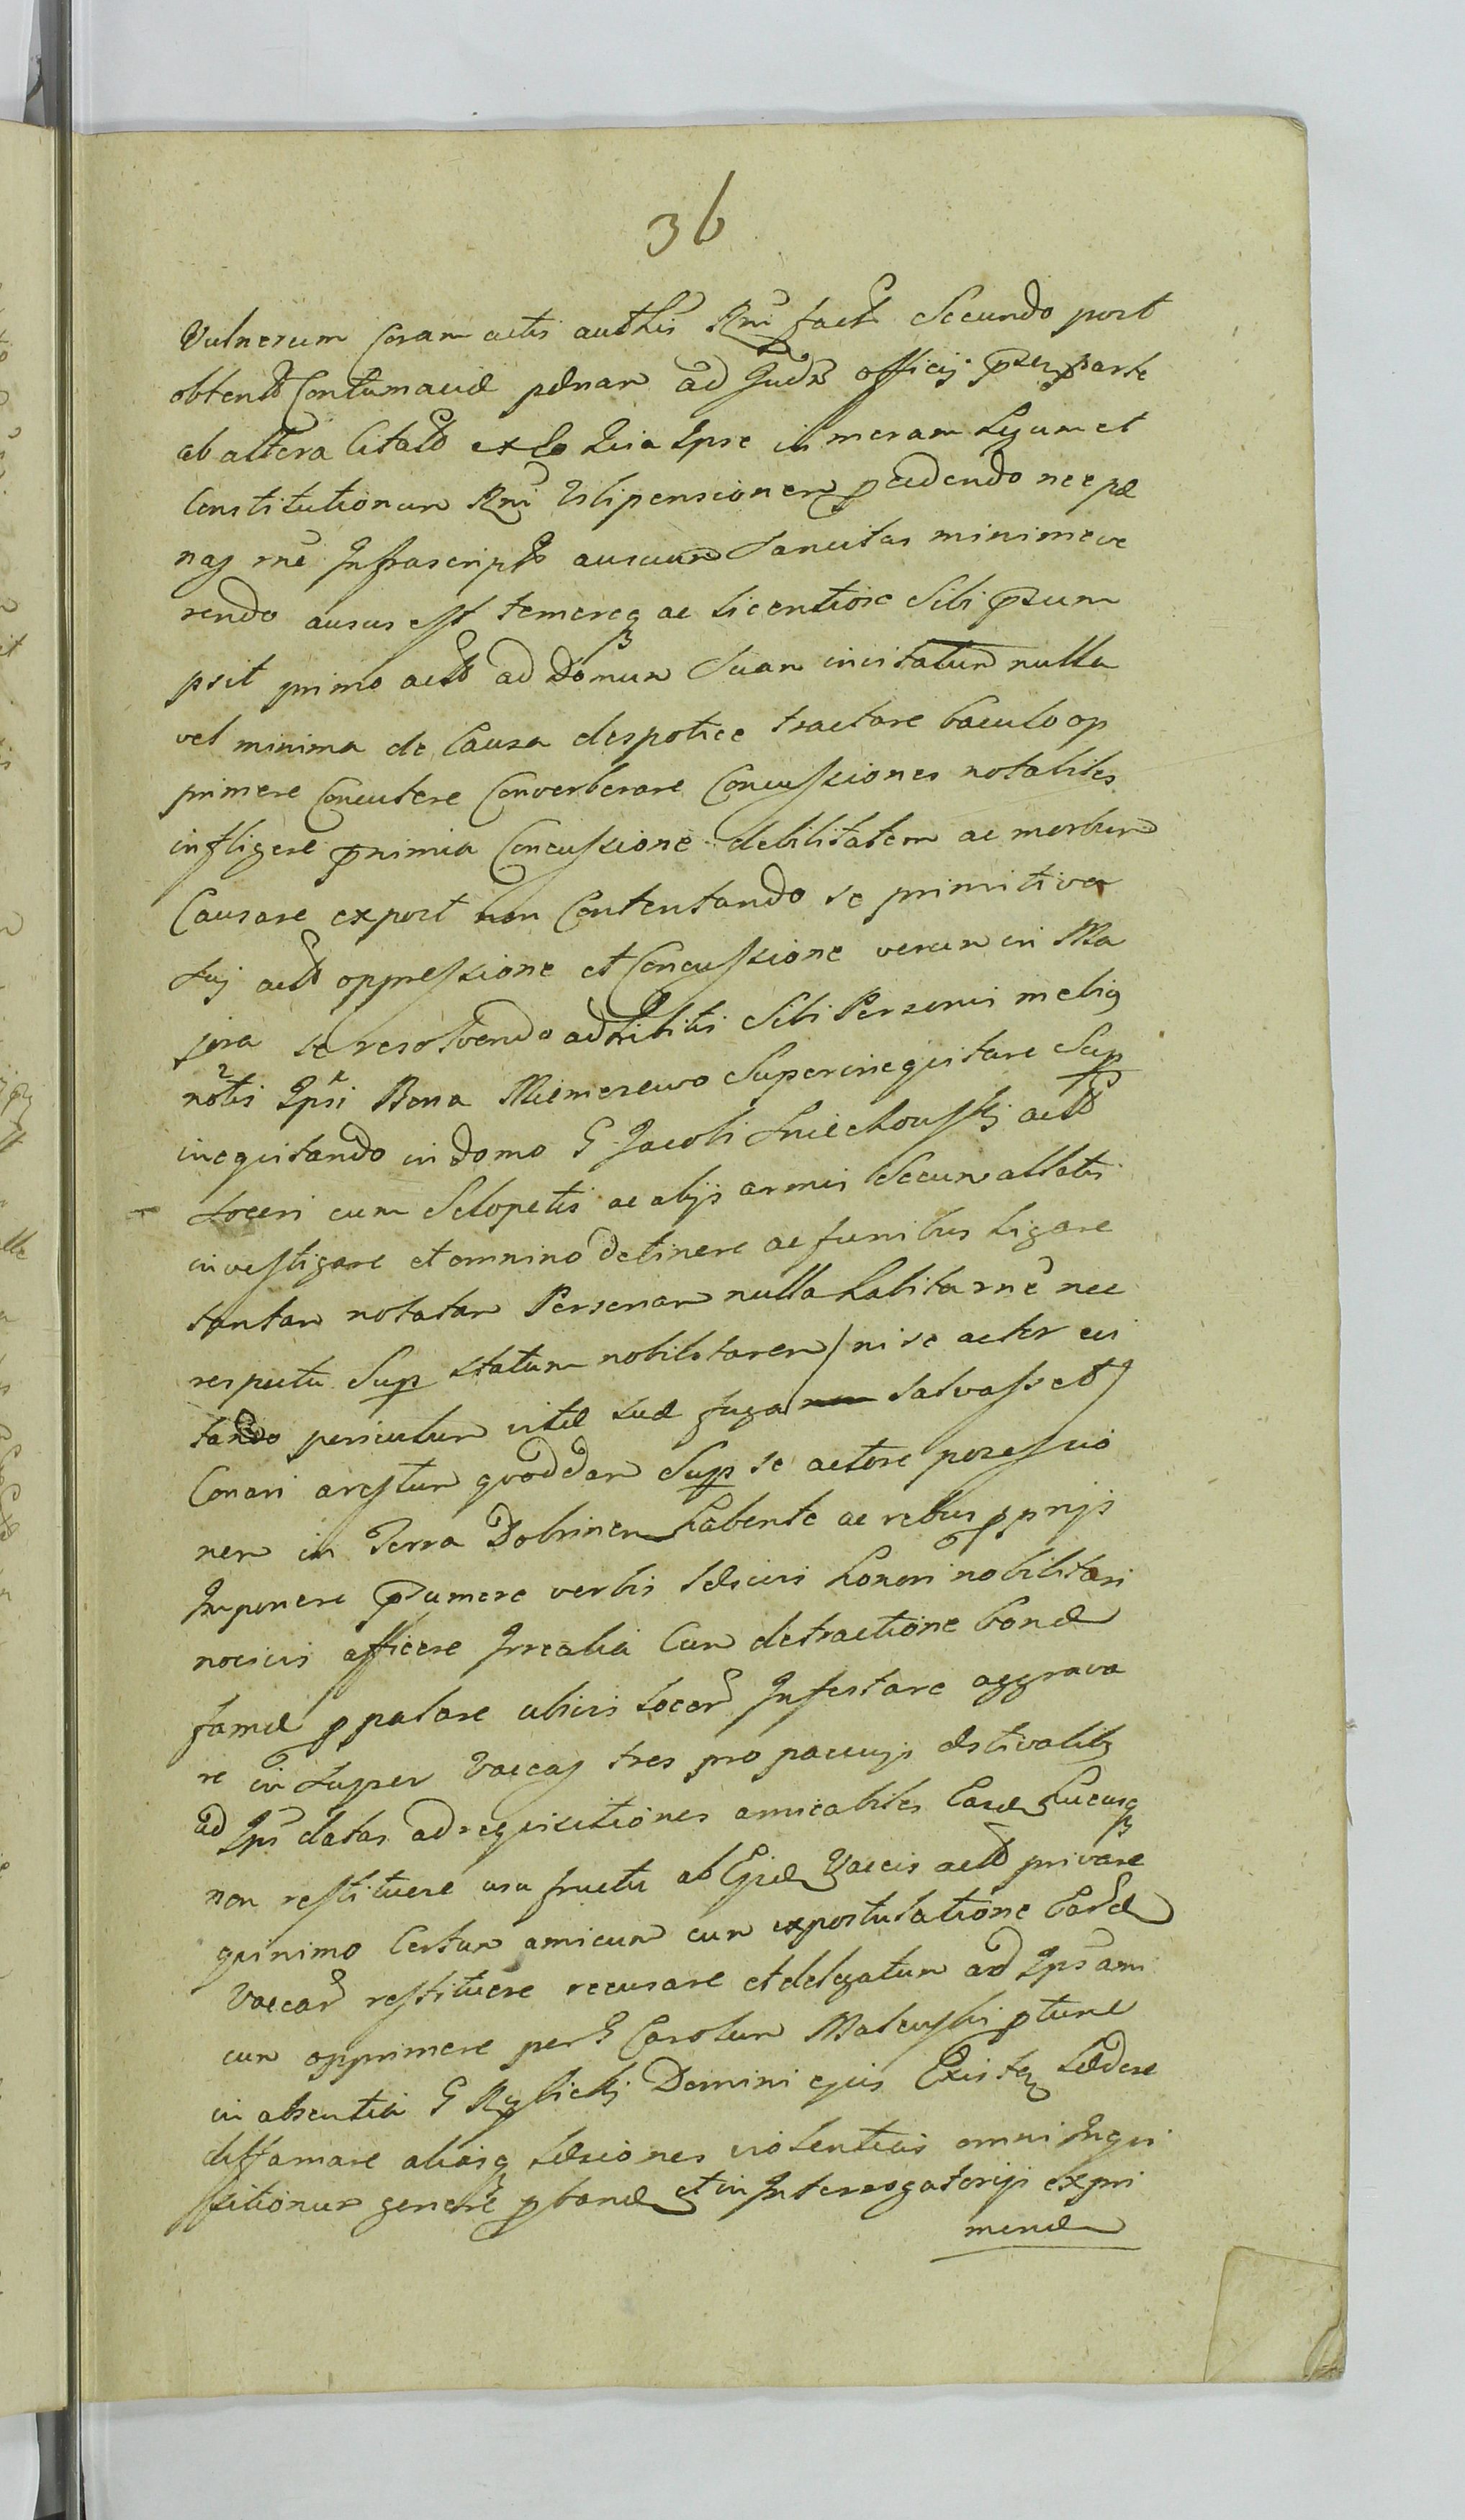 36
Vulnerum coram actis authcis Rni fact Secundo post
obtent Contumaciæ pænam ad Judm officij pten parte
ab altera Citato ex eo Quia Ipse in meram Legum et
Constitutionum Rni Vilipensionem pcedendo nec pæ
nas rne Infrascripto auscum Sancitas minime ve
rendo ausus est temereq ac licentiose Sibi psum
psit primo act ad Domum Suam invitatum nulla
vel minima de Causa despotice tractare baculo op
primere Concutere Converberare Concussiones notabiles
infligere pnimia Concussione debilitatem ac morbum
Causare expost non Contentando se primitiva
Suj act oppressione et Concussione verum in Ma
jora se resolvendo adhibitis Sibi Personis melig
notis Ipsi Bona Miemerewo Superinequitare Sup
inequitando in domo G Jacobi Sniechowskj act
Soceri cum Sclopetis ac alijs armis Secum allatis
investigare et omnino detinere ac funibus ligare
tantam notatam Personam nulla habita rne nec
respectu Sup statum nobilitarem / ni se actor evi
tando periculum vitæ suæ fuga salvasset /
Conari arestum quoddam Sup se actore possessio
nem in Terra Dobrinen habente ac rebus pprijs
Imponere psumere verbis læsivis honori nobilitari
nocivis afficere Irrealia Cum detractione bonæ
famæ ppalare alivis socer Infestare aggrava
re in Super Vaccas tres pro pascuijs æstivalibq
ad Ips datas ad requisitiones amicabiles Easd hucusq
non restituere usu fructu ab Ejsd Vaccis act privare
quinimo Certum amicum cum expostulatione Eard
Vaccar restituere recusare et delegatum ad Ips ami
cum opprimere per G Carolum Malewski ptunc
in absentia G Rybickj Domini ejus Existen Lædere
diffamare aliasq læsiones violenticis omni Inqui
sitionum genere pband et in Interrogatorijs expri
mend